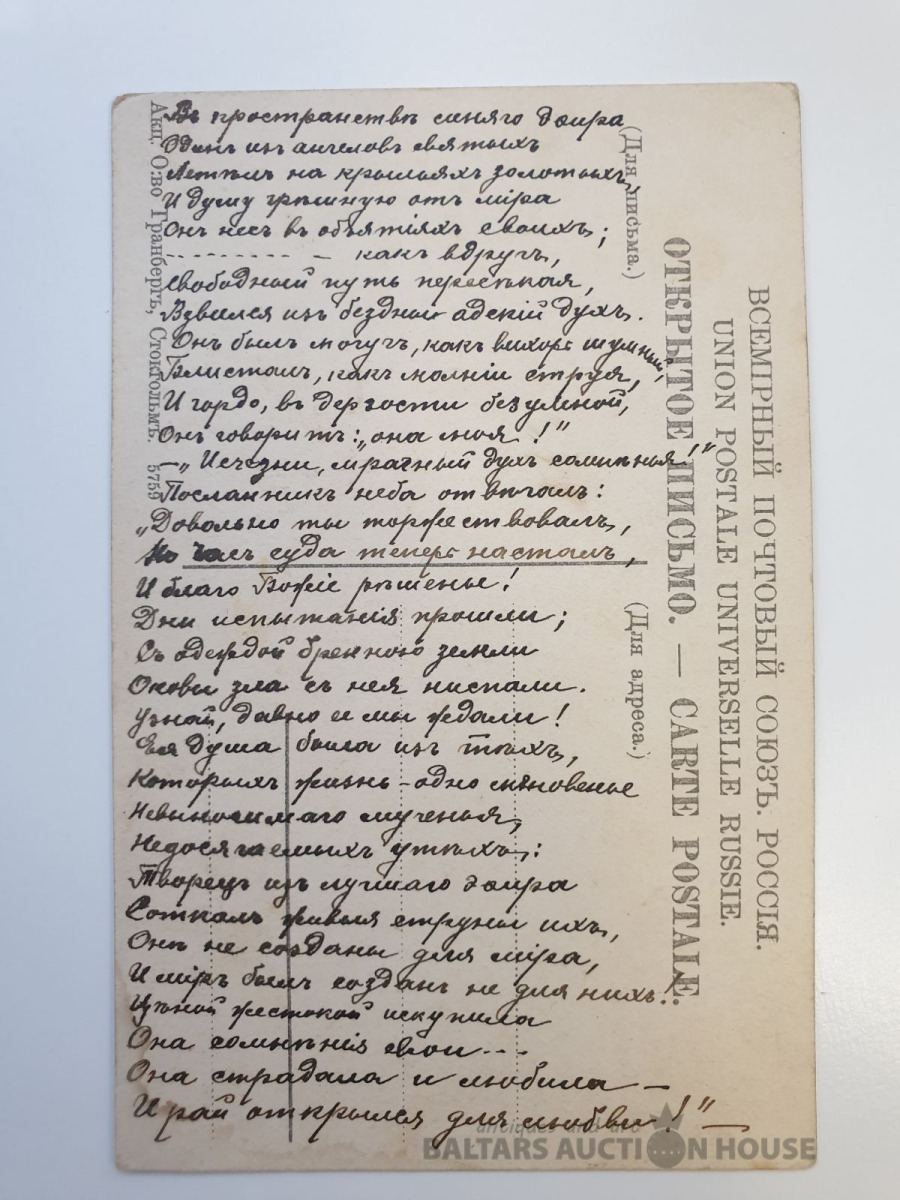 Въ пространствѣ синяго эѳира
Одинъ изъ ангеловъ святыхъ
Летѣлъ на крыльяхъ золотыхъ,
И душу грѣшную отъ міра
Онъ несъ въ объятіяхъ своихъ;
- - - - - - - - - - какъ вдругъ,
Свободный путь пересѣкая,
Взвился изъ бездны адскій духъ.
Онъ былъ могучъ, какъ вихорь шумный,
Блисталъ, какъ молніи струя,
И гордо, въ дерзости безумной,
Онъ говоритъ: „она моя!"
— „Исчезни, мрачный духъ сомнѣнья!"
Посланникъ неба отвѣчалъ:
„Довольно ты торжествовалъ,
Но часъ суда теперь насталъ,
И благо Божіе рѣшенье!
Дни испытанія прошли;
Съ одеждой бренною земли
Оковы зла съ нея ниспали.
Узнай, давно ее мы ждали!
Ея душа была изъ тѣхъ,
Которыхъ жизнь – одно мгновенье
Невыносимаго мученья,
Недосягаемыхъ утѣхъ:
Творецъ изъ лучшаго эѳира
Соткалъ живыя струны ихъ,
Онѣ не созданы для міра,
И міръ былъ созданъ не для нихъ!
Цѣной жестокой искупила
Она сомнѣнія свои...
Она страдала и любила —
И рай открылся для любви!" —
ВСЕМІРНЫЙ ПОЧТОВЫЙ СОЮЗЪ. РОССІЯ.
UNION POSTALE UNIVERSELLE RUSSIE.
ОТКРЫТОЕ ПИСЬМО. — CARTE POSTALE.
(Для письма.)
(Для адреса.)
Акц. О:во Гранбергъ, Стокгольмъ. 5759
BALTARS AUCTION HOUSE